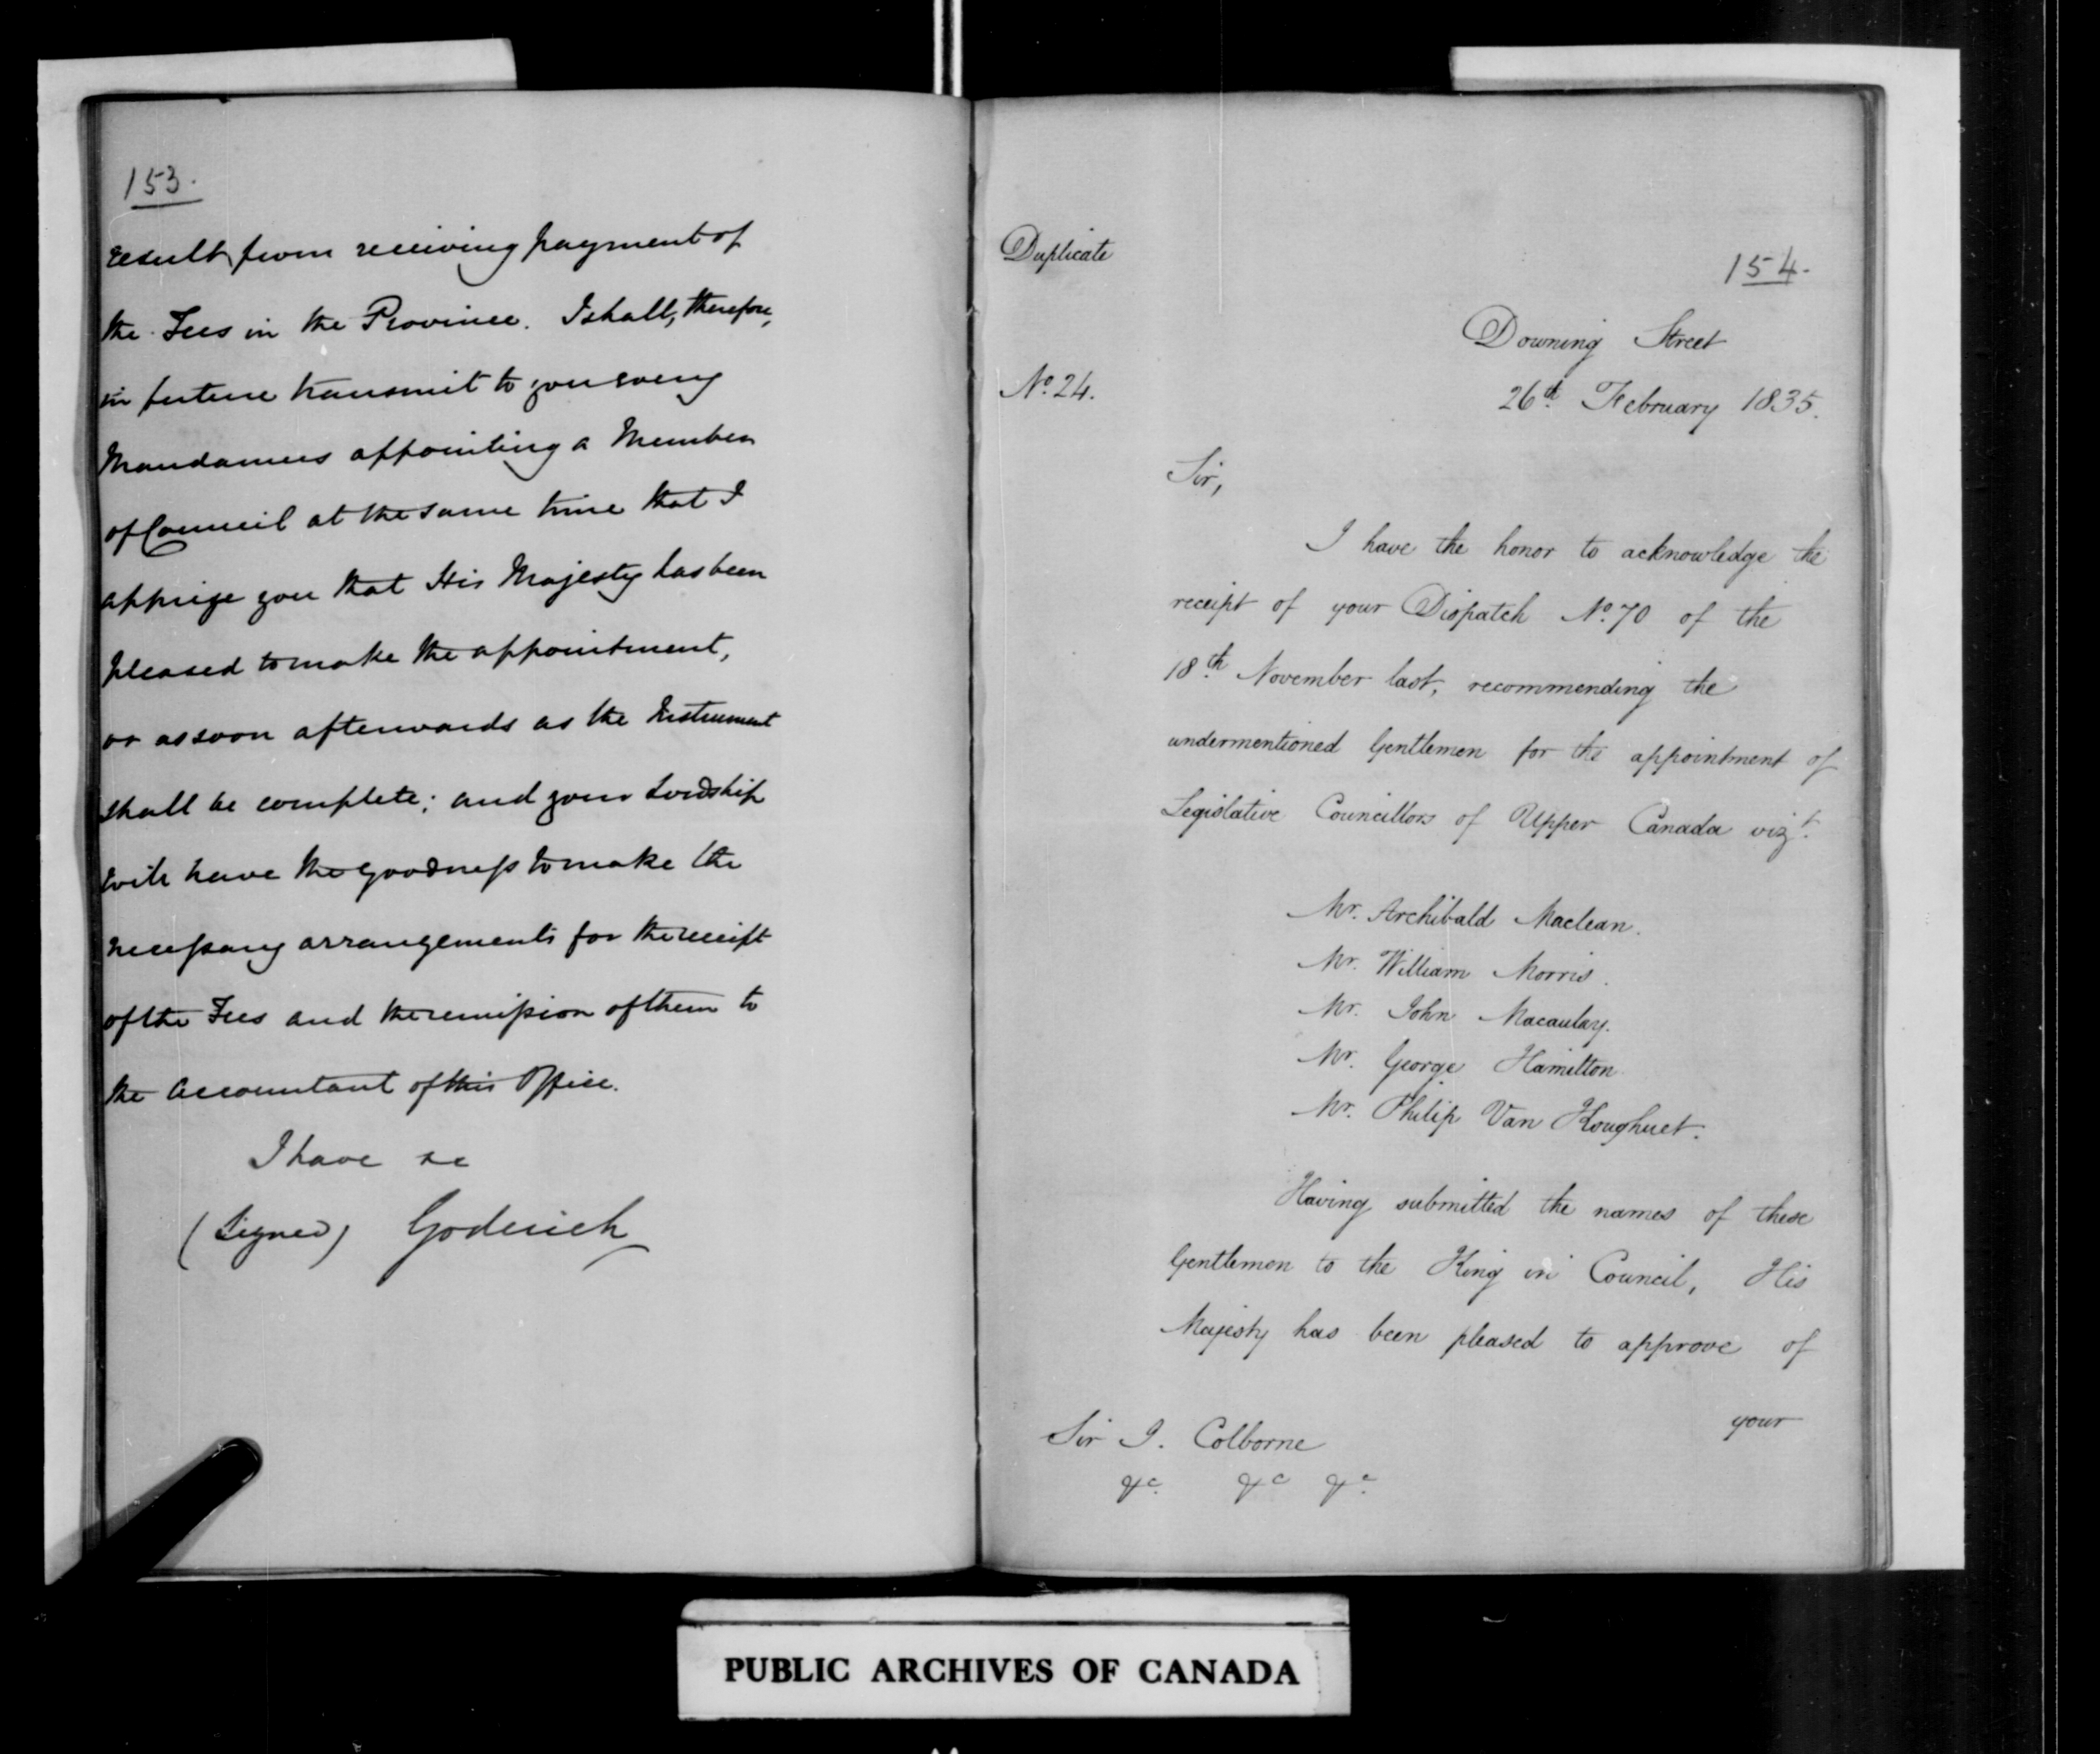 153.
result from receiving payment of
the Fees in the Province. I shall, therefore,
in future transmit to you every
Mandamus appointing a Member
of Council at the same time that I
apprize you that His Majesty has been
pleased to make the appointment,
or as soon afterwards as the Instrument
shall be complete; and your Lordship
will have the goodness to make the
necessary arrangements for the receipt
of the Fees and the remission of them to
the Accountant of this Office.
I have &c
(Signed) Goderich
Duplicate
154.
Downing Street
No. 24.
26th February 1835.
Sir,
I have the honor to acknowledge the
receipt of your Dispatch No. 70 of the
18th November last, recommending the
undermentioned Gentlemen for the appointment of
Legislative Councillors of Upper Canada vizt.
Mr. Archibald Maclean.
Mr. William Morris.
Mr. John Macaulay.
Mr. George Hamilton
Mr. Philip Van Koughuet.
Having submitted the names of these
Gentlemen to the King in Council, His
Majesty has been pleased to approve of
your
Sir J. Colborne
&c. &c &c.
PUBLIC ARCHIVES OF CANADA